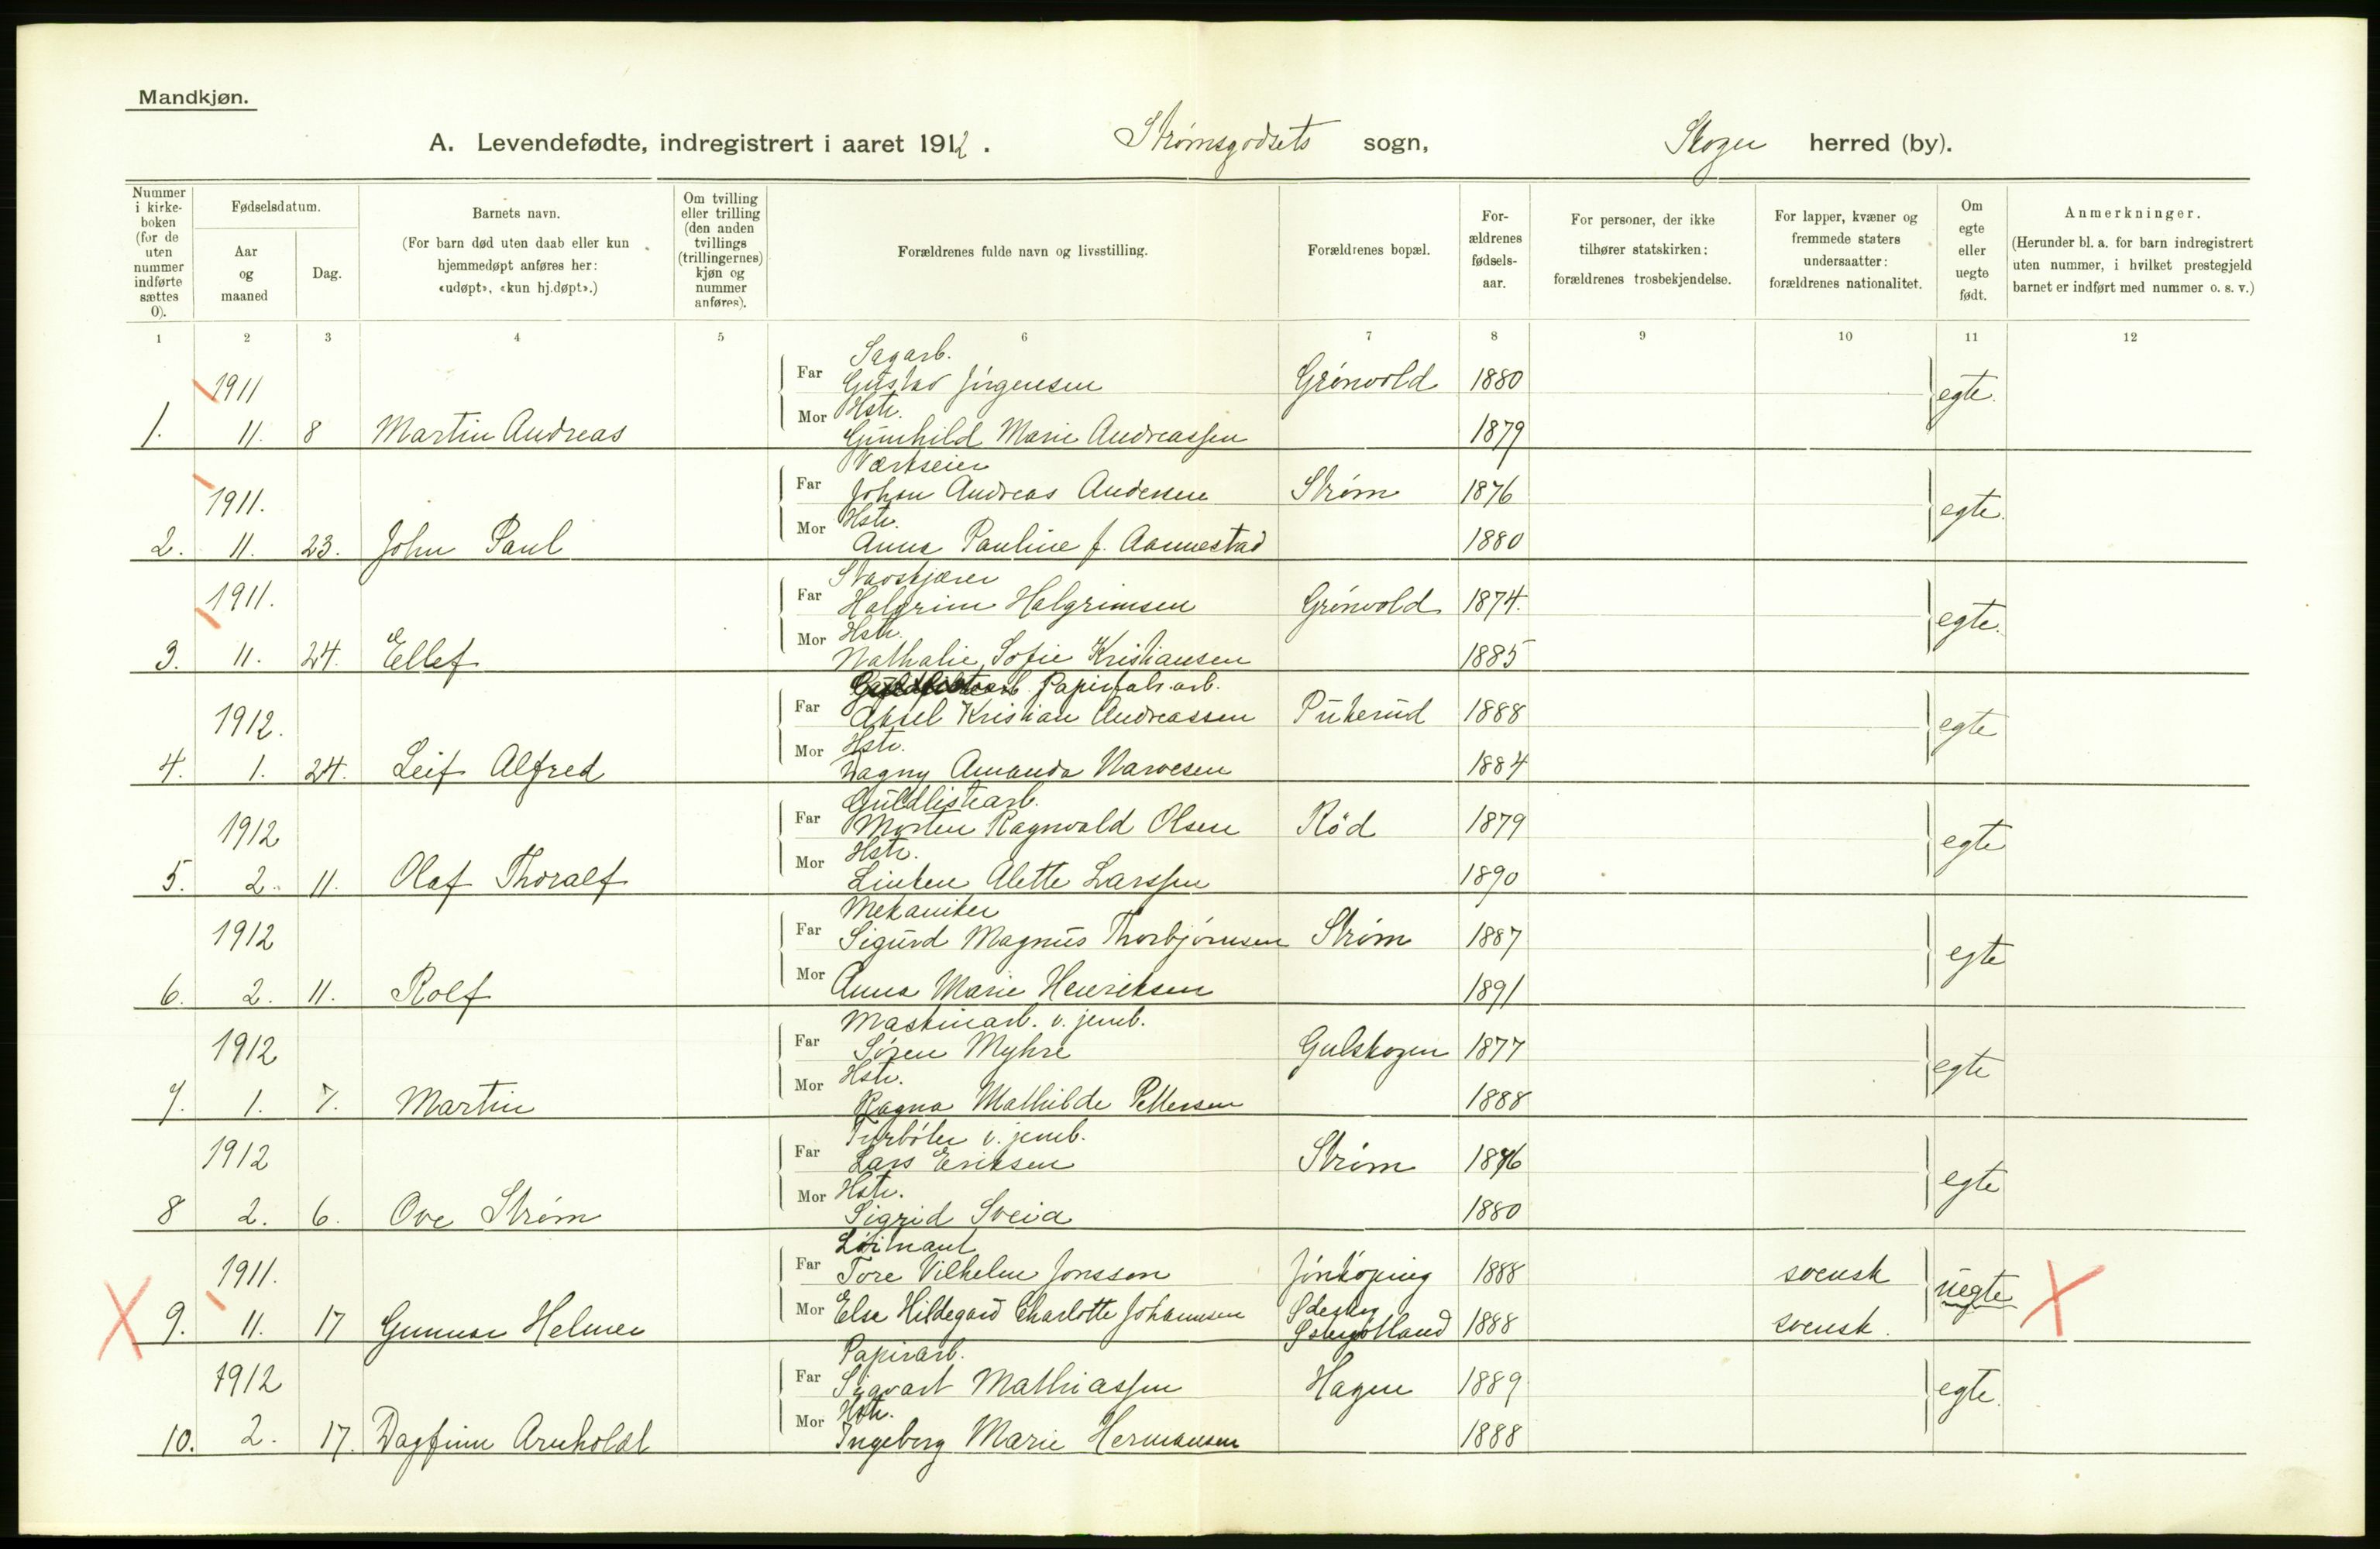 Mandkjøn.
A. Levendefødte, indregistrert i aaret 1912. Strømsgodsets sogn, Skoger herred (by).
Nummer i kirke-boken (for de uten nummer indførte sættes 0).
Fødselsdatum.
Aar og maaned
Dag.
Barnets navn.
(For barn død uten daab eller kun hjemmedøpt anføres her: «udøpt», «kun hj.døpt».)
Om tvilling eller trilling (den anden tvillings (trillingernes) kjøn og nummer anføres).
Forældrenes fulde navn og livsstilling.
Forældrenes bopæl.
For-ældrenes fødsels-aar.
For personer, der ikke tilhører statskirken: forældrenes trosbekjendelse.
For lapper, kvæner og fremmede staters undersaatter: forældrenes nationalitet.
Om egte eller uegte født.
Anmerkninger.
(Herunder bl. a. for barn indregistrert uten nummer, i hvilket prestegjeld barnet er indført med nummer o. s. v.)
1 2 3 4 5 6 7 8 9 10 11 12
Sagarb.
1911 Far Gustav Jørgensen Grønvold 1880 egte.
Mor Hstr.
1. 11. 8 Martin Andreas Gunhild Marie Andreassen 1879
Værkseier
1911. Far Johan Andreas Andersen Strøm 1876 egte.
Mor Hstr.
2. 11. 23. John Paul Anna Pauline f. Aannestad 1880
Stavskjærer
1911. Far Halgrim Halgrimsen Grønvold 1874. egte.
Mor Hstr.
3. 11. 24. Ellef Nathalie Sofie Kristiansen 1885
Papirfabr.arb.
1912. Far Aksel Kristian Andreassen Pukerud 1888 egte
Mor Hstr.
4. 1. 24. Leif Alfred Dagny Amanda Narvesen 1884
Guldlistearb.
1912 Far Morten Ragnvald Olsen Rød 1879 egte
Mor Hstr.
5. 2. 11. Olaf Thoralf Linken Alette Larssen 1890
Mekaniker
1912 Far Sigurd Magnus Thorbjørnsen Strøm 1887 egte
6. 2. 11. Rolf Mor Anna Marie Henriksen 1891
Maskinarb. v. jernb.
1912 Far Søren Myhre Gulskogen 1877 egte
Mor Hstr.
7. 1. 7. Martin Ragna Mathilde Pettersen 1888
Fyrbøter v. jernb.
1912 Far Lars Eriksen Strøm 1876 egte
Mor Hstr.
8 2. 6. Ove Strøm Sigrid Sveia 1880
Løitnant
1911. Far Tore Vilhelm Jonsson Jönköping 1888 svensk uegte
9. 11. 17 Gunnar Helmer Mor Else Hildegard Charlotte Johannsen Østergötland 1888 svensk.
Papirarb.
1912 Far Sigvart Mathiassen Hagen 1889 egte.
Mor Hstr.
10. 2. 17. Dagfinn Arnholdt Ingeborg Marie Hermansen 1888